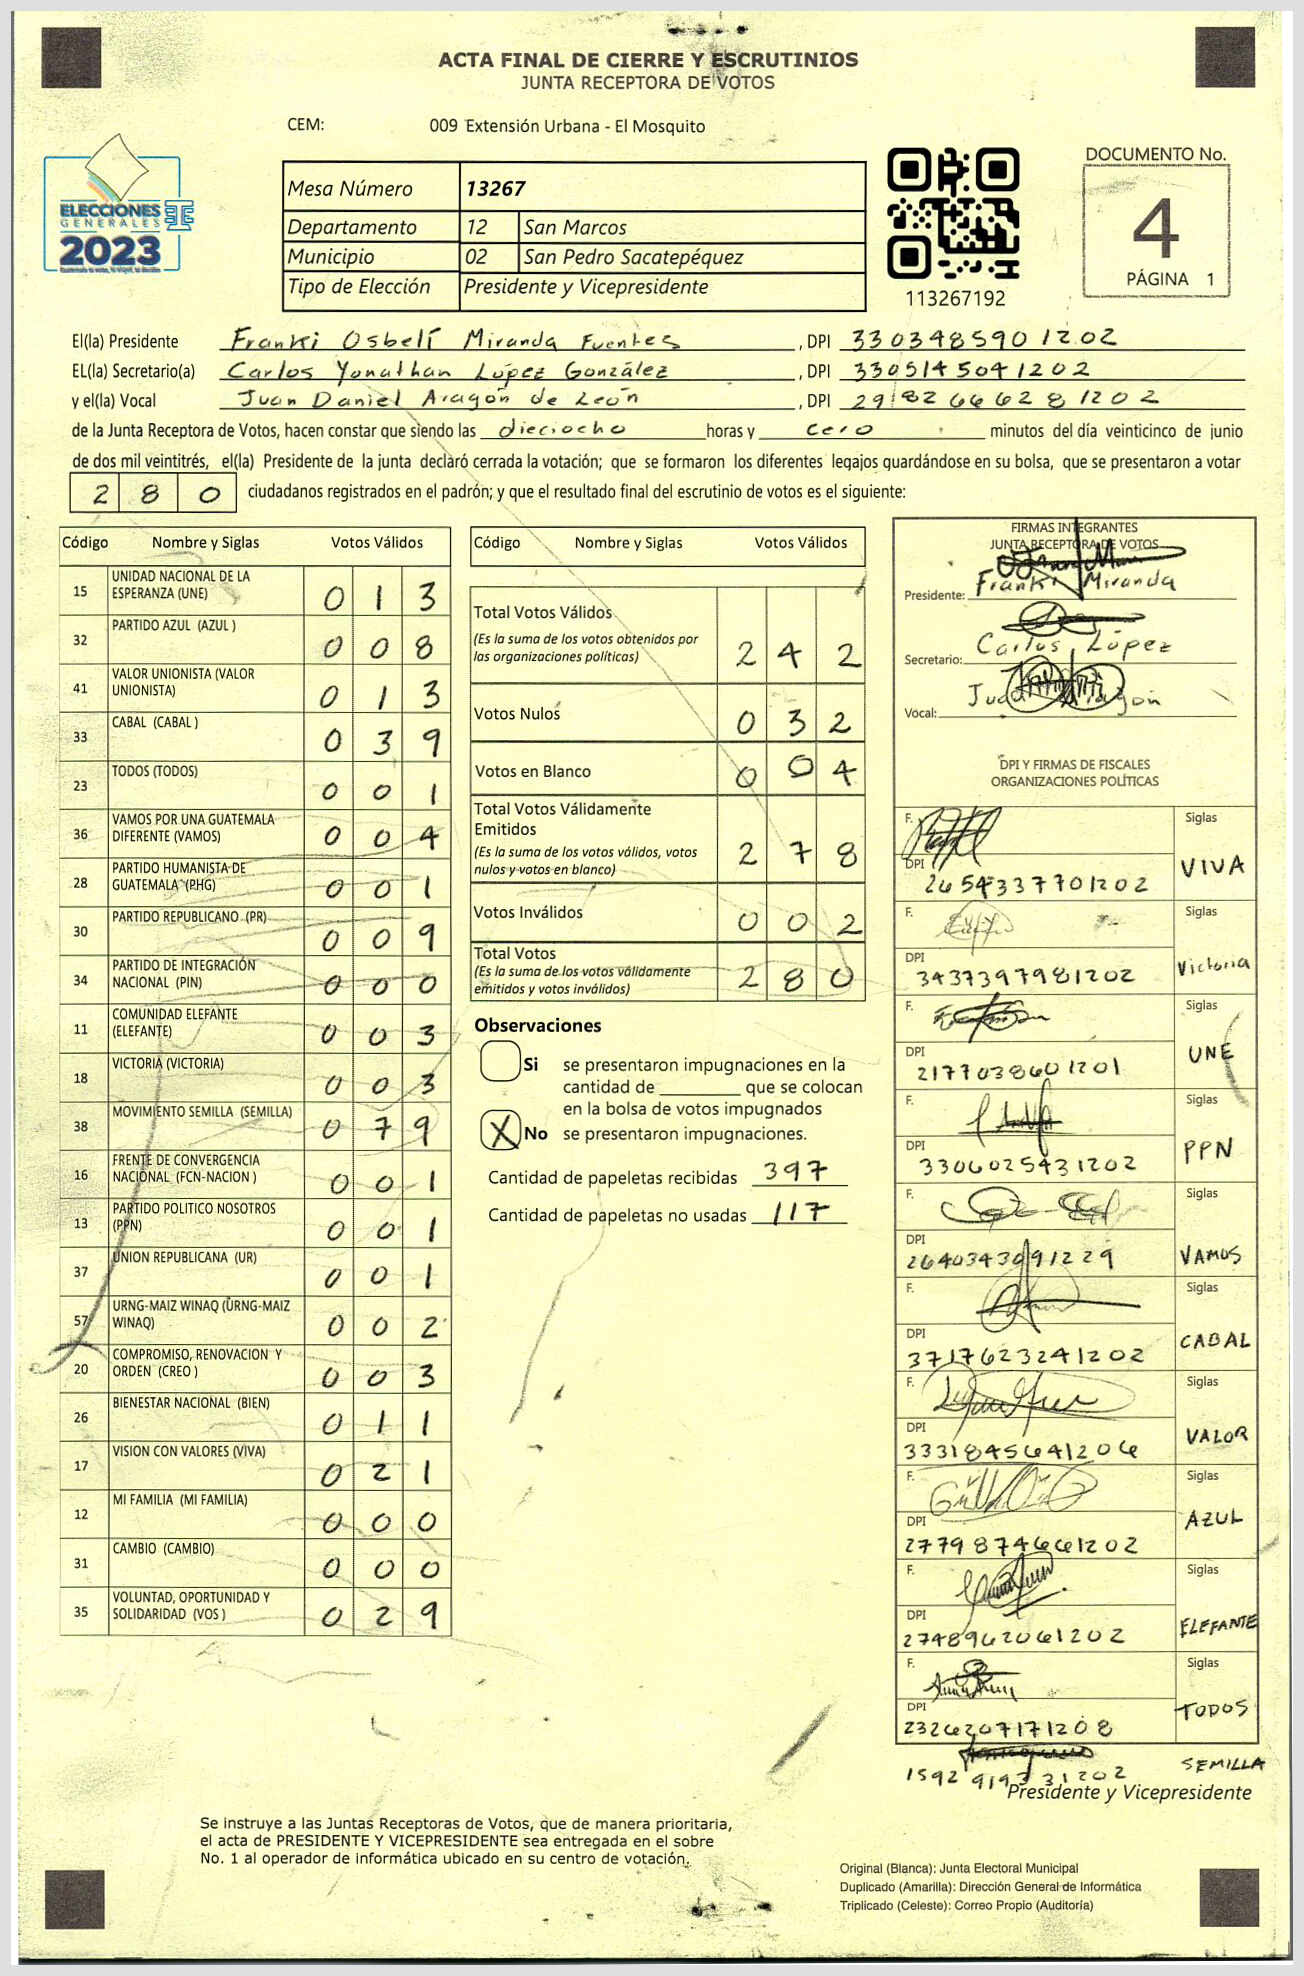 ACTA FINAL DE CIERRE Y ESCRUTINIOS
JUNTA RECEPTORA DE VOTOS
CEM: 009 Extensión Urbana - El Mosquito
ELECCIONES
GENERALES
2023
Mesa Número 13267
Departamento 12 San Marcos
Municipio 02 San Pedro Sacatepéquez
Tipo de Elección Presidente y Vicepresidente
113267192
DOCUMENTO No.
4
PÁGINA 1
El(la) Presidente Franki Osbelí Miranda Fuentes, DPI 3303485901202
EL(la) Secretario(a) Carlos Yonathan López González, DPI 3305145041202
y el(la) Vocal Juan Daniel Aragón de León, DPI 2982666281202
de la Junta Receptora de Votos, hacen constar que siendo las dieciocho horas y cero minutos del día veinticinco de junio
de dos mil veintitrés, el(la) Presidente de la junta declaró cerrada la votación; que se formaron los diferentes legajos guardándose en su bolsa, que se presentaron a votar
280 ciudadanos registrados en el padrón; y que el resultado final del escrutinio de votos es el siguiente:
Código Nombre y Siglas Votos Válidos
15 UNIDAD NACIONAL DE LA ESPERANZA (UNE) 013
32 PARTIDO AZUL (AZUL ) 008
41 VALOR UNIONISTA (VALOR UNIONISTA) 013
33 CABAL (CABAL ) 039
23 TODOS (TODOS) 001
36 VAMOS POR UNA GUATEMALA DIFERENTE (VAMOS) 004
28 PARTIDO HUMANISTA DE GUATEMALA (PHG) 001
30 PARTIDO REPUBLICANO (PR) 009
34 PARTIDO DE INTEGRACIÓN NACIONAL (PIN) 000
11 COMUNIDAD ELEFANTE (ELEFANTE) 003
18 VICTORIA (VICTORIA) 003
38 MOVIMIENTO SEMILLA (SEMILLA) 079
16 FRENTE DE CONVERGENCIA NACIONAL (FCN-NACION ) 001
13 PARTIDO POLITICO NOSOTROS (PPN) 001
37 UNION REPUBLICANA (UR) 001
57 URNG-MAIZ WINAQ (URNG-MAIZ WINAQ) 002
20 COMPROMISO, RENOVACION Y ORDEN (CREO ) 003
26 BIENESTAR NACIONAL (BIEN) 011
17 VISION CON VALORES (VIVA) 021
12 MI FAMILIA (MI FAMILIA) 000
31 CAMBIO (CAMBIO) 000
35 VOLUNTAD, OPORTUNIDAD Y SOLIDARIDAD (VOS ) 029
Código Nombre y Siglas Votos Válidos
Total Votos Válidos
(Es la suma de los votos obtenidos por
las organizaciones políticas) 242
Votos Nulos 032
Votos en Blanco 004
Total Votos Válidamente
Emitidos
(Es la suma de los votos válidos, votos
nulos y votos en blanco) 278
Votos Inválidos 002
Total Votos
(Es la suma de los votos válidamente
emitidos y votos inválidos) 280
Observaciones
Si se presentaron impugnaciones en la
cantidad de ________ que se colocan
en la bolsa de votos impugnados
X No se presentaron impugnaciones.
Cantidad de papeletas recibidas 397
Cantidad de papeletas no usadas 117
FIRMAS INTEGRANTES
JUNTA RECEPTORA DE VOTOS
Presidente: Franki Miranda
Secretario: Carlos López
Vocal: Juan Aragón
DPI Y FIRMAS DE FISCALES
ORGANIZACIONES POLÍTICAS
F. Siglas
DPI 2654337701202 VIVA
F. Siglas
DPI 3437397981202 Victoria
F. Siglas
DPI 2177038601201 UNE
F. Siglas
DPI 3306025431202 PPN
F. Siglas
DPI 2640343091229 VAMOS
F. Siglas
DPI 3717623241202 CABAL
F. Siglas
DPI 3331845641206 VALOR
F. Siglas
DPI 2779874661202 AZUL
F. Siglas
DPI 2748962061202 ELEFANTE
F. Siglas
DPI 2326207171208 TODOS
1592 919331202 SEMILLA
Presidente y Vicepresidente
Se instruye a las Juntas Receptoras de Votos, que de manera prioritaria,
el acta de PRESIDENTE Y VICEPRESIDENTE sea entregada en el sobre
No. 1 al operador de informática ubicado en su centro de votación.
Original (Blanca): Junta Electoral Municipal
Duplicado (Amarilla): Dirección General de Informática
Triplicado (Celeste): Correo Propio (Auditoría)